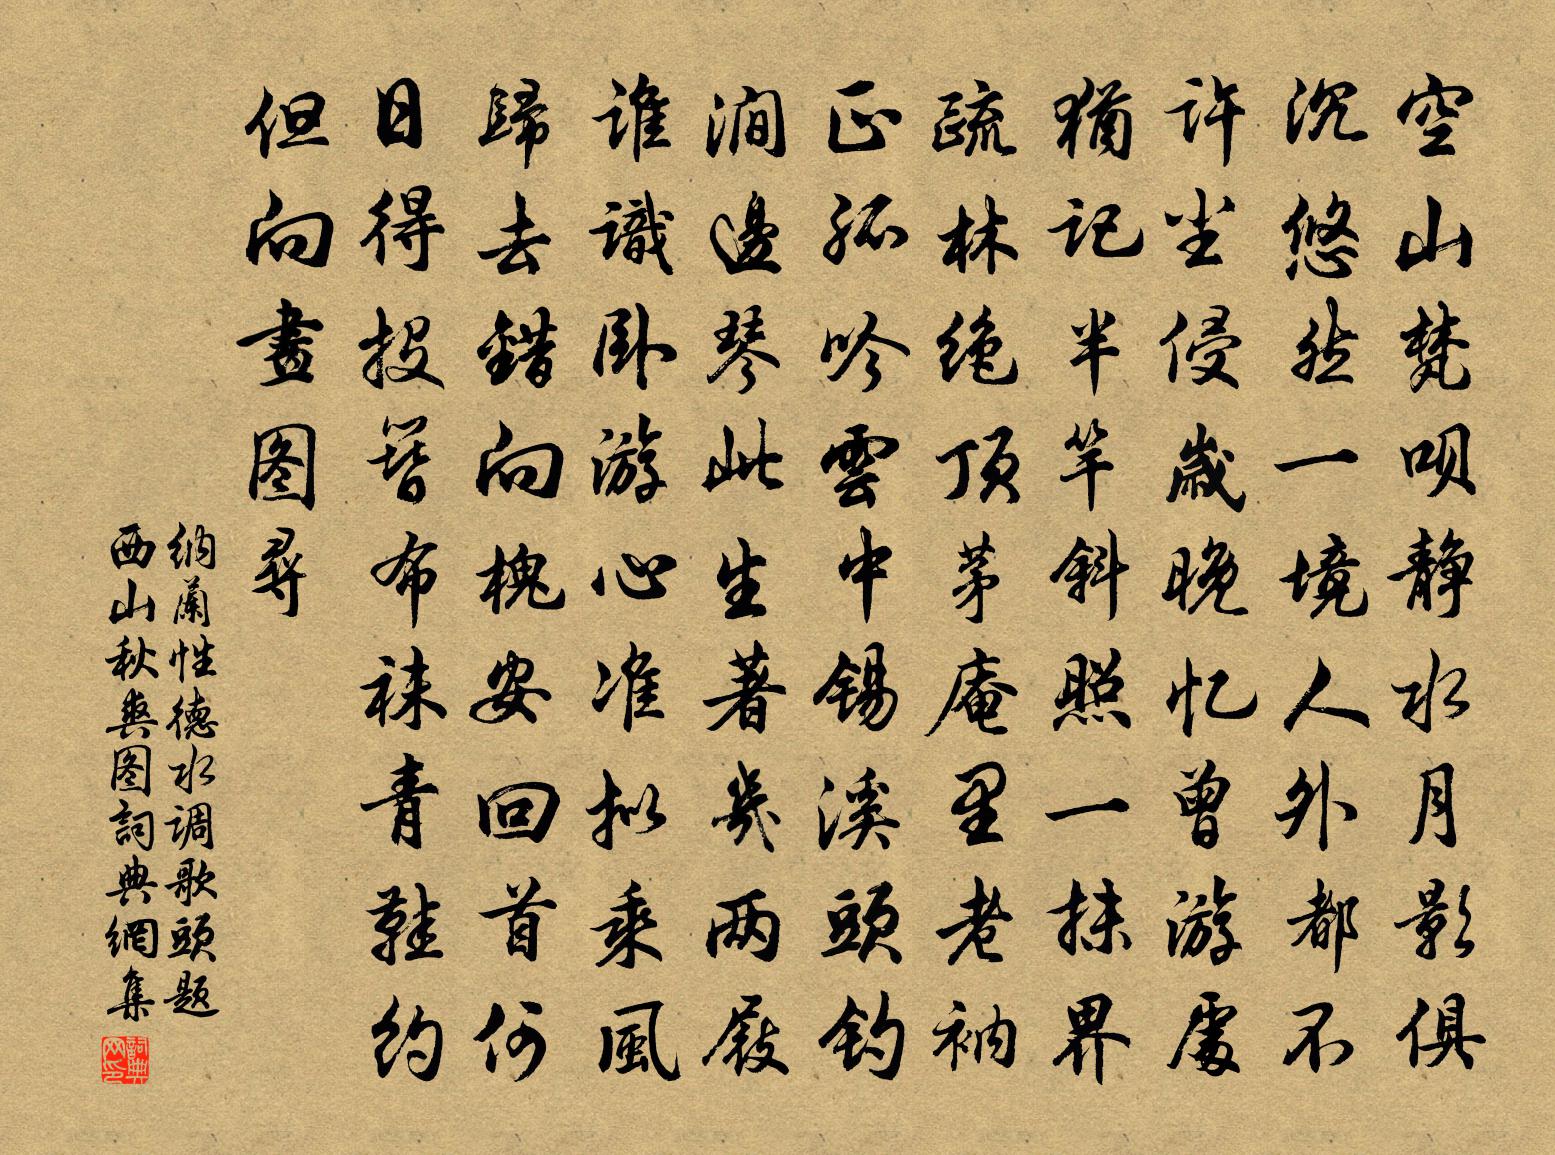 空山梵呗静水月影俱
沉悠然一境人外都不
许尘侵歲晚忆曾游處
猶记半竿斜照一抹界
疏林绝顶茅庵里老衲
正孤吟雲中锡溪頭钓
澗邊琴此生著幾两屐
谁識卧游心准拟乘風
歸去錯向槐安回首何
日得投簪布袜青鞋约
但向畫图尋
纳蘭性德水调歌頭题
西山秋爽图詞典網集
詞典网印